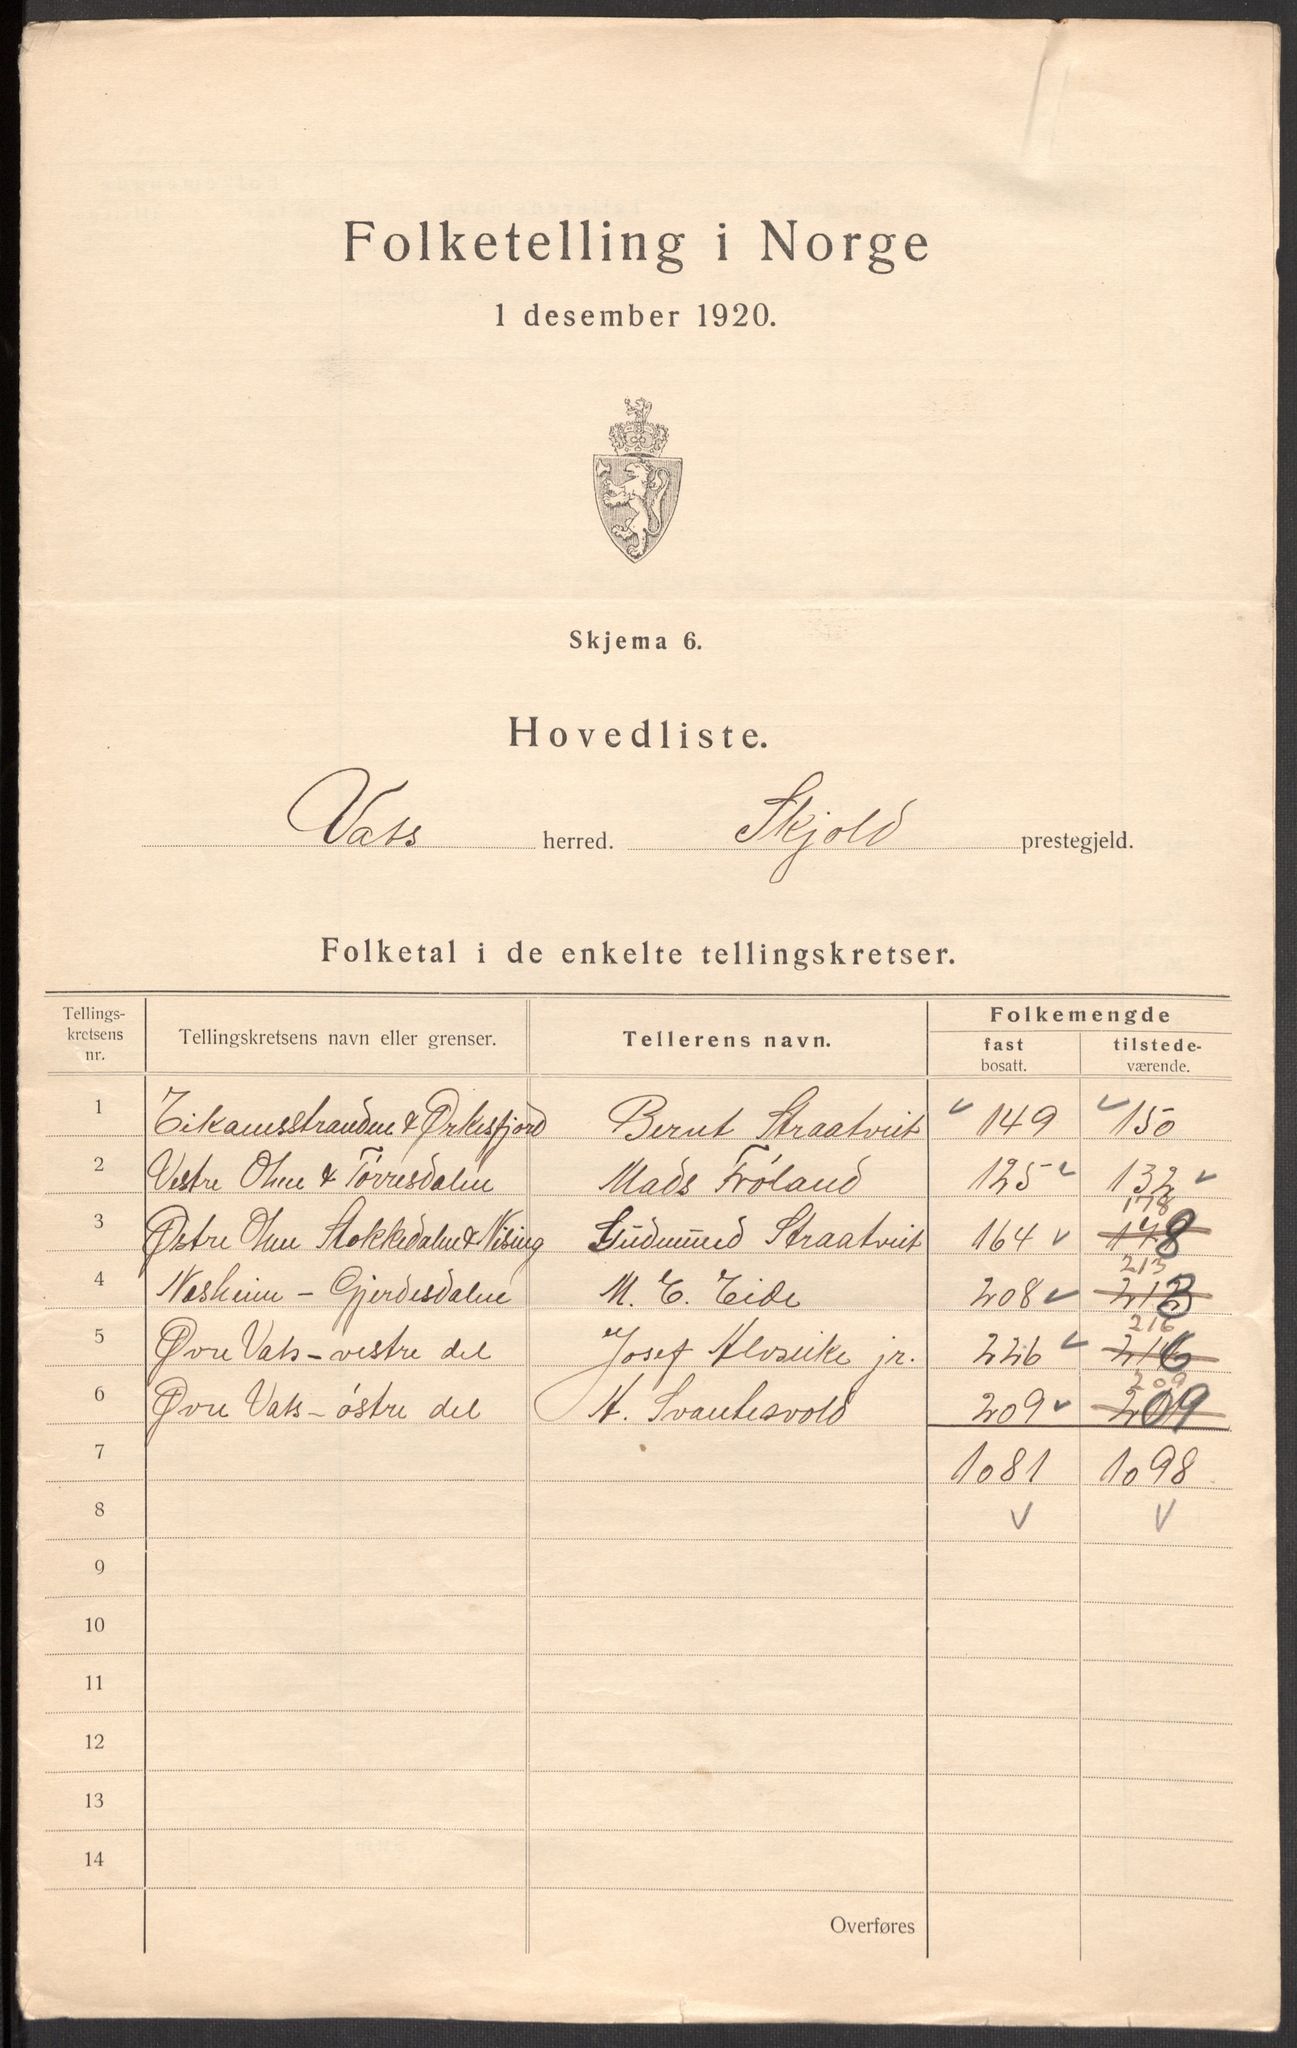 Folketelling i Norge
1 desember 1920.
Skjema 6.
Hovedliste.
Vats herred. Skjold prestegjeld.
Folketal i de enkelte tellingskretser.
Tellings-kretsens nr. Tellingskretsens navn eller grenser. Tellerens navn. Folkemengde
fast bosatt. tilstede-værende.
1 Eikanesstranden & Ørkisfjord Bernt Straatveit 149 150
2 Vestre Ølen & Tørresdalen Mads Frøland 125 132
178
3 Østre Ølen Stokkedalen & Vising Gudmund Straatveit 164 178
213
4 Nesheim - Gjerdesdalen M. E. Eide 208 213
216
5 Øvre Vats - vestre del Josef Alvseike jr. 226 216
209
6 Øvre Vats - østre del A. Svantesvold 209 209
7 1081 1098
8
9
10
11
12
13
14
Overføres